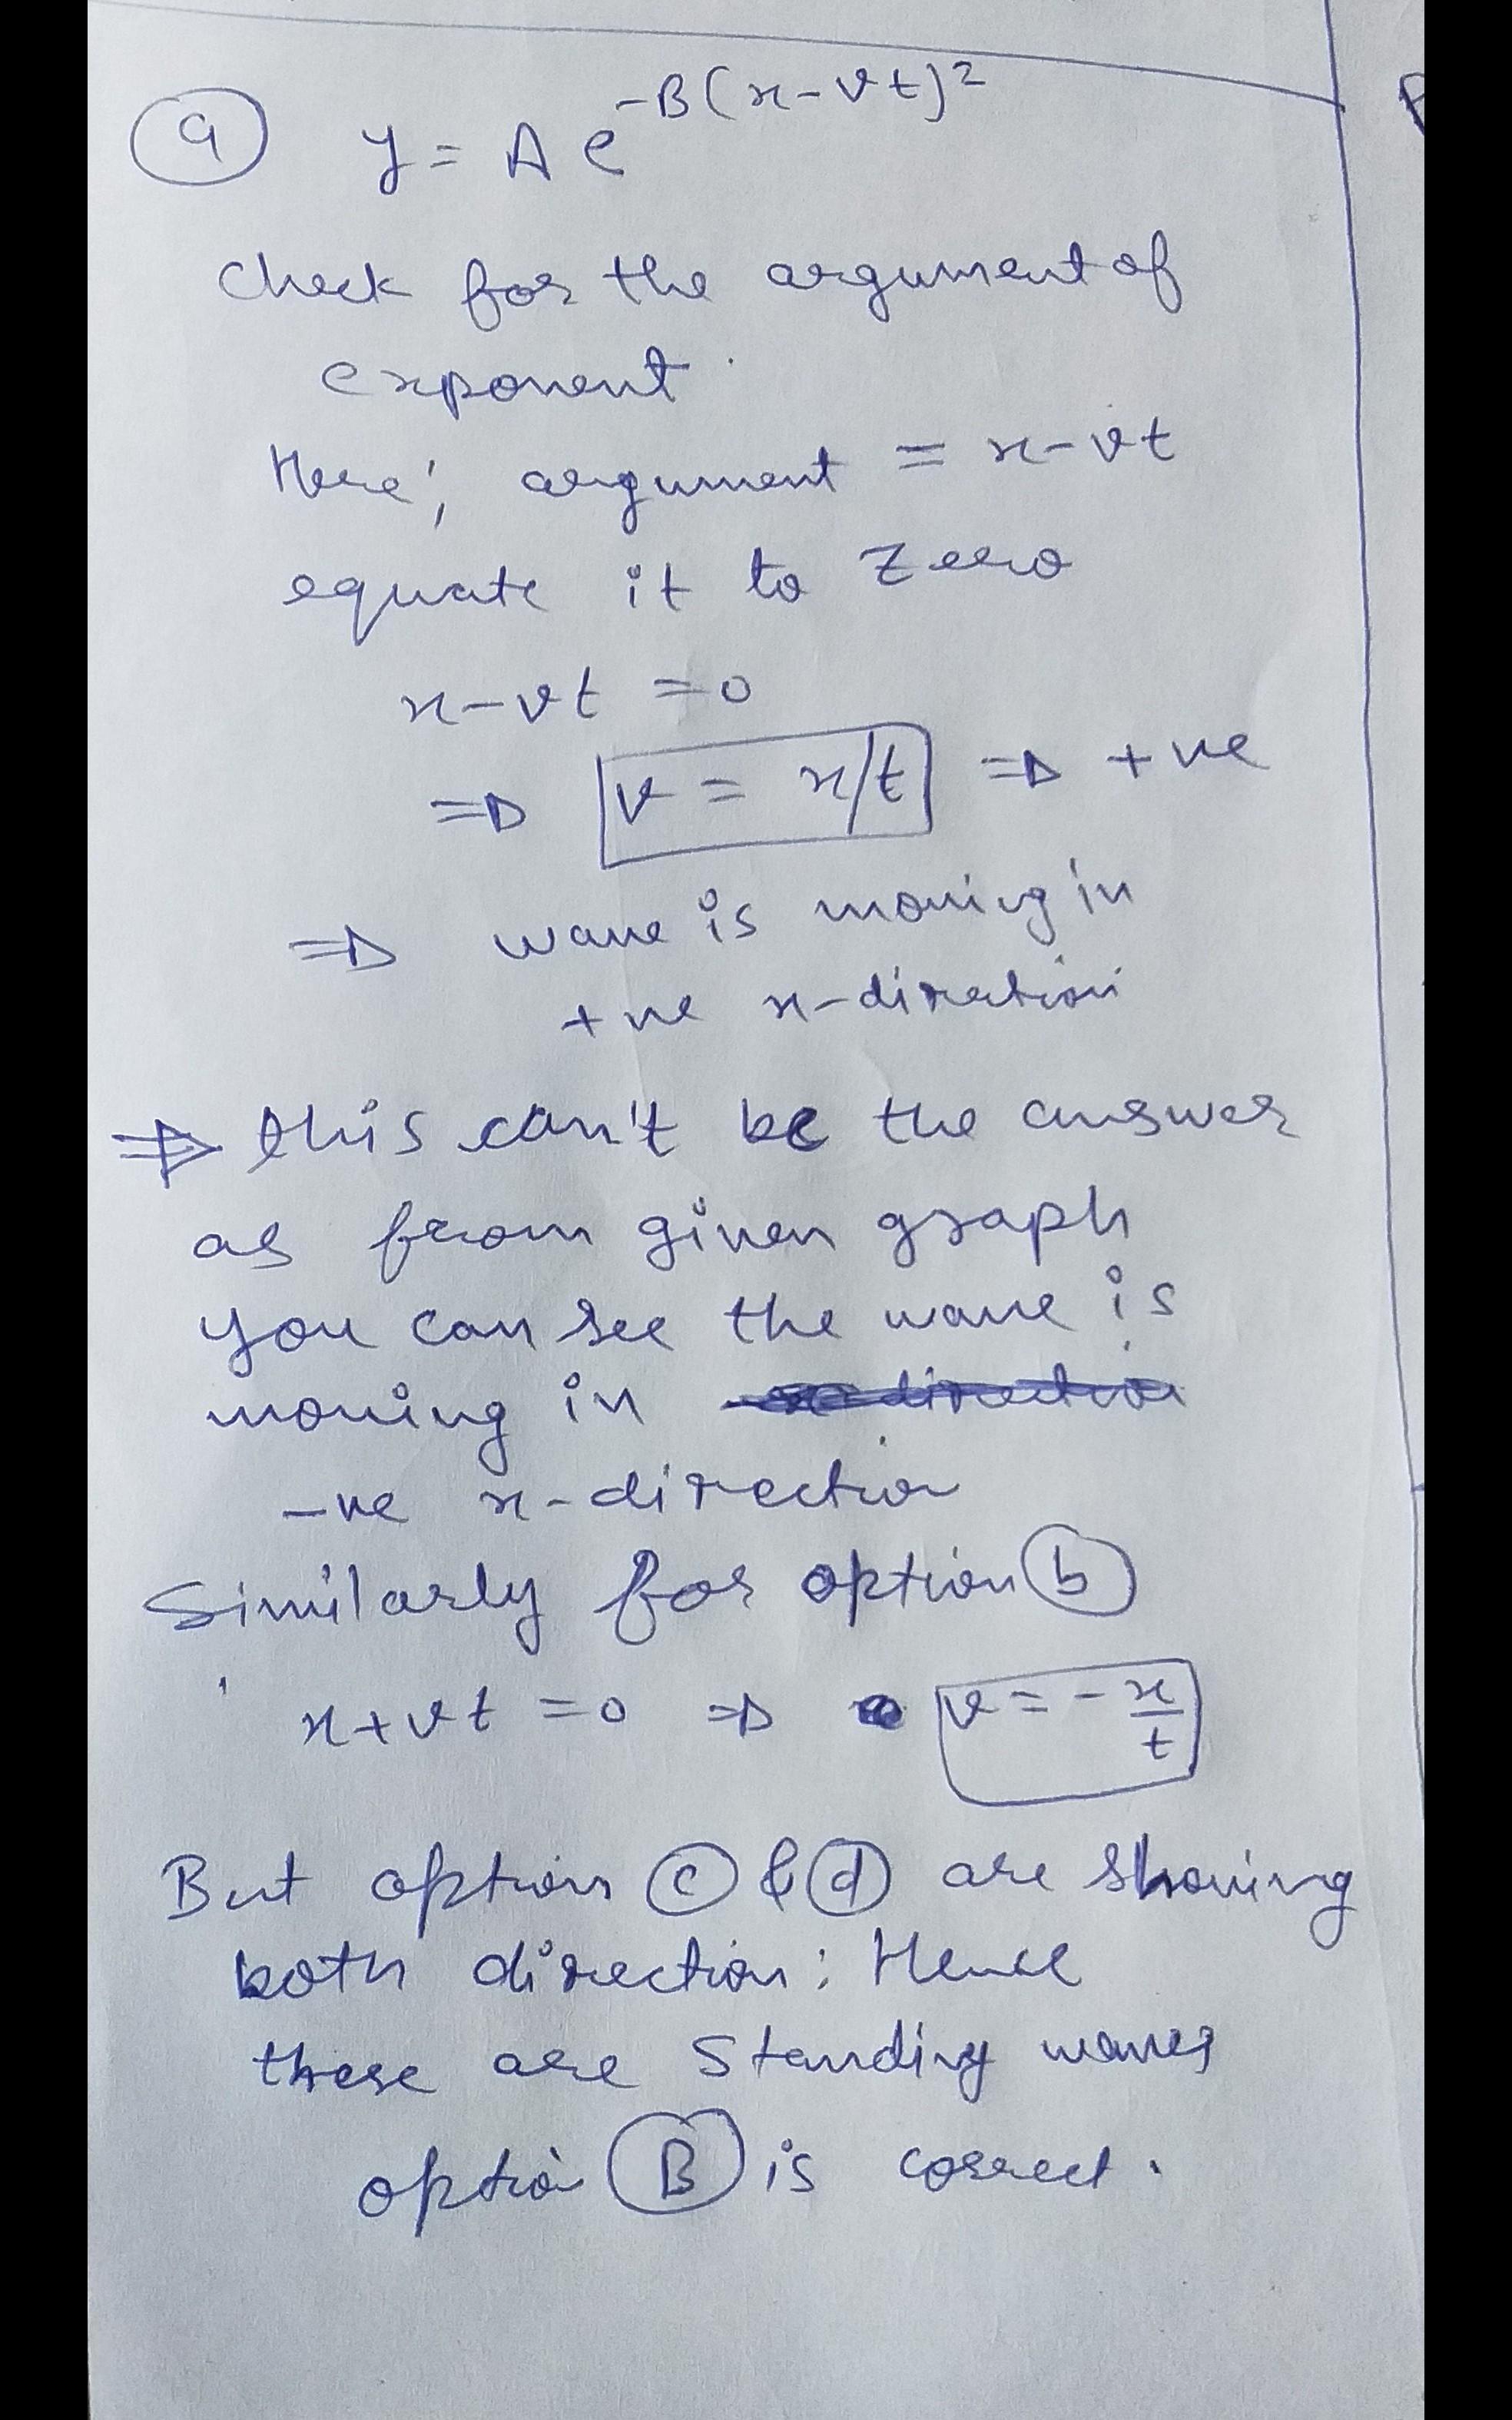 a y = A e^-B(x-vt)²
Check for the argument of
exponent.
Here; argument = x-vt
equate it to zero
x-vt = 0
⇒ v = x/t ⇒ +ve
⇒ wave is moving in
+ve x-diration
⇒ this can't be the answer
as from given graph
you can see the wave is
moving in
-ve x-direction
Similarly for option b
x+vt = 0 ⇒ v = -x/t
But option c & d are showing
both direction: Hence
these are Standing waves
option B is correct.